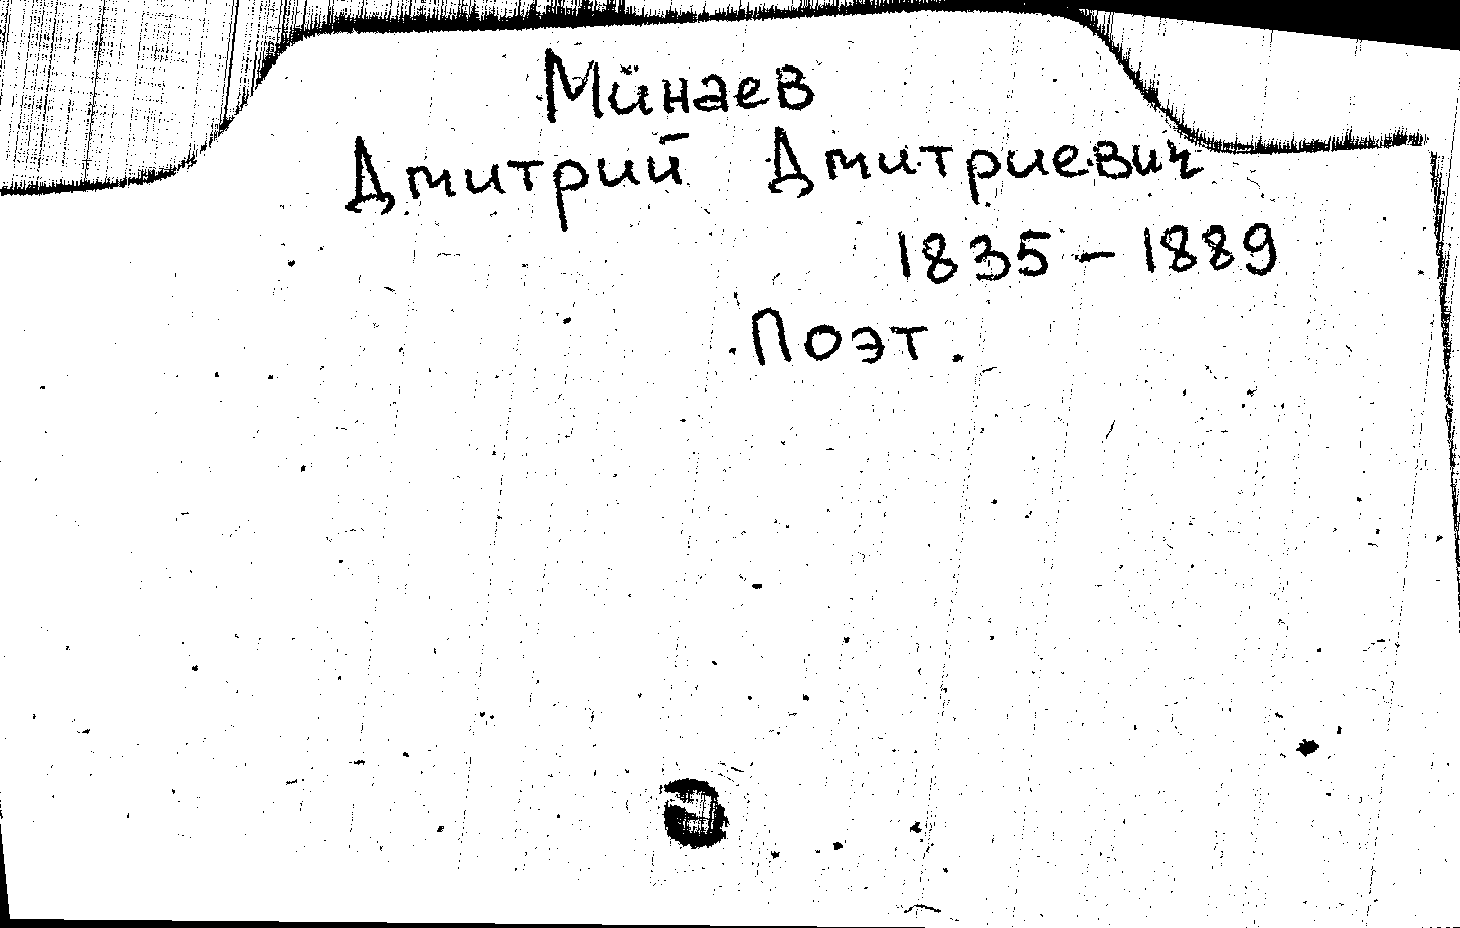 Минаев
Дмитрий Дмитриевич
1835 – 1889
Поэт.